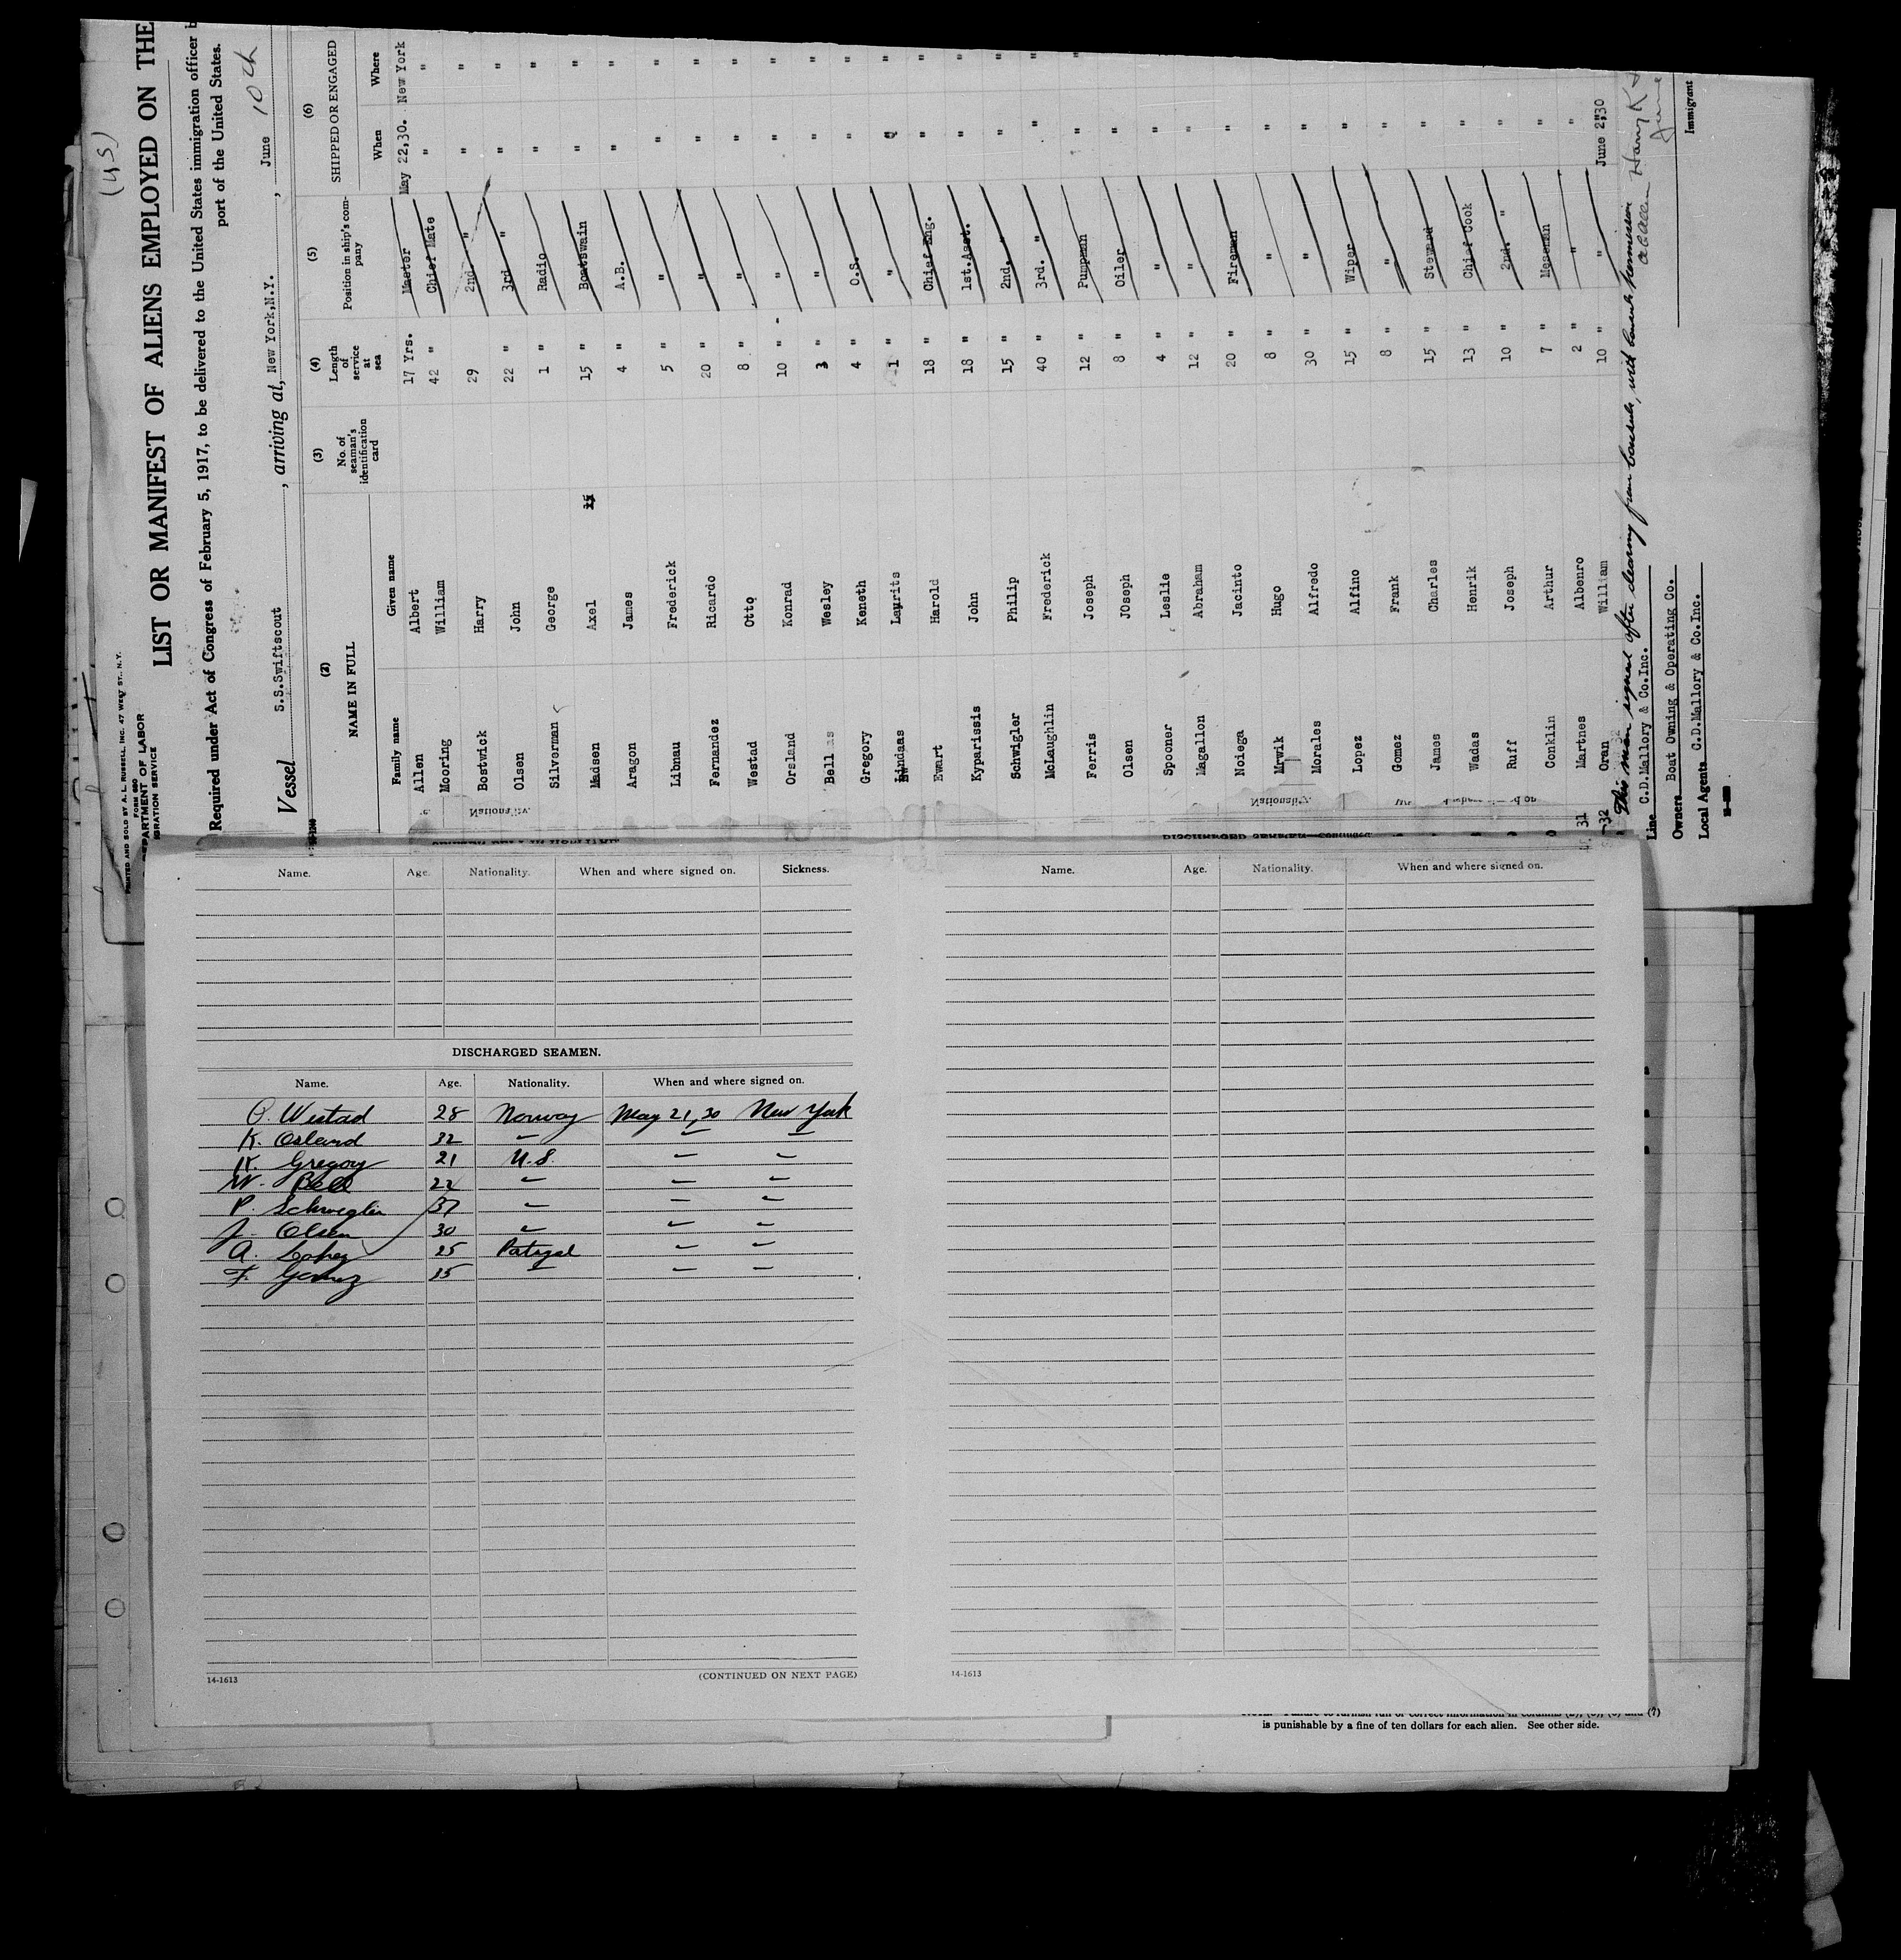 (US)
PRINTED AND SOLD BY A. L. RUSSELL, INC. 47 WEST ST., N.Y.
FORM 680
DEPARTMENT OF LABOR
IMMIGRATION SERVICE
LIST OR MANIFEST OF ALIENS EMPLOYED ON THE
Required under Act of Congress of February 5, 1917, to be delivered to the United States immigration officer b
port of the United States.
Vessel S.S.Swiftscout, arriving at, New York,N.Y., June 10th
(2) (3) (4) (5) (6)
NAME IN FULL No. of seaman's identification card Length of service at sea Position in ship's company SHIPPED OR ENGAGED
Family name Given name When Where
Allen Albert 17 Yrs. Master May 22,30. New York
Mooring William 42 " Chief Mate " "
Bostwick Harry 29 2nd " " "
Olsen John 22 " 3rd " " "
Silverman George 1 " Radio " "
Madsen Axel 15 " Boatswain " "
Aragon James 4 " A.B. " "
Libnau Frederick 5 " " " "
Fernandez Ricardo 20 " " " "
Westad Otto 8 " " " "
Orsland Konrad 10 " " " "
Bell Wesley 3 " " " "
Gregory Keneth 4 " O.S. " "
Lindaas Laurits 1 " " " "
Ewart Harold 18 " Chief Eng. " "
Kyparissis John 18 " 1st.Asst. " "
Schwigler Philip 15 " 2nd. " " "
McLaughlin Frederick 40 " 3rd. " " "
Ferris Joseph 12 " Pumpman " "
Olsen JOseph 8 " Oiler "
Spooner Leslie 4 " " "
Magallon Abraham 12 " " "
Noiega Jacinto 20 " Fireman "
Mrwik Hugo 8 " " "
Morales Alfredo 30 " " "
Lopez Alfino 15 " Wiper "
Gomez Frank 8 " " "
James Charles 15 " Steward "
Wadas Henrik 13 " Chief Cook "
Ruff Joseph 10 " 2nd. " "
Conklin Arthur 7 " Messman "
31 Martnes Albenro 2 " " "
32 Oran William 10 " " June 2,30
This man signed after clearing from Consul, with Consul's permission
Line C.D.Mallory & Co.Inc.
Owners Boat Owning & Operating Co.
Local Agents C.D.Mallory & Co.Inc.
Immigrant
Name. Age. Nationality. When and where signed on. Sickness.
DISCHARGED SEAMEN.
Name. Age. Nationality. When and where signed on.
O. Westad 28 Norway May 21,30 New York
K. Osland 32 " " "
K. Gregory 21 U.S. " "
W. Bell 22 " " "
P. Schweglin 37 " " "
J. Olsen 30 " " "
A. Lopez 25 Portugal " "
F. Gomez 25 " " "
14-1613 (CONTINUED ON NEXT PAGE)
DISCHARGED SEAMEN—Continued.
Name. Age. Nationality. When and where signed on.
14-1613
is punishable by a fine of ten dollars for each alien. See other side.